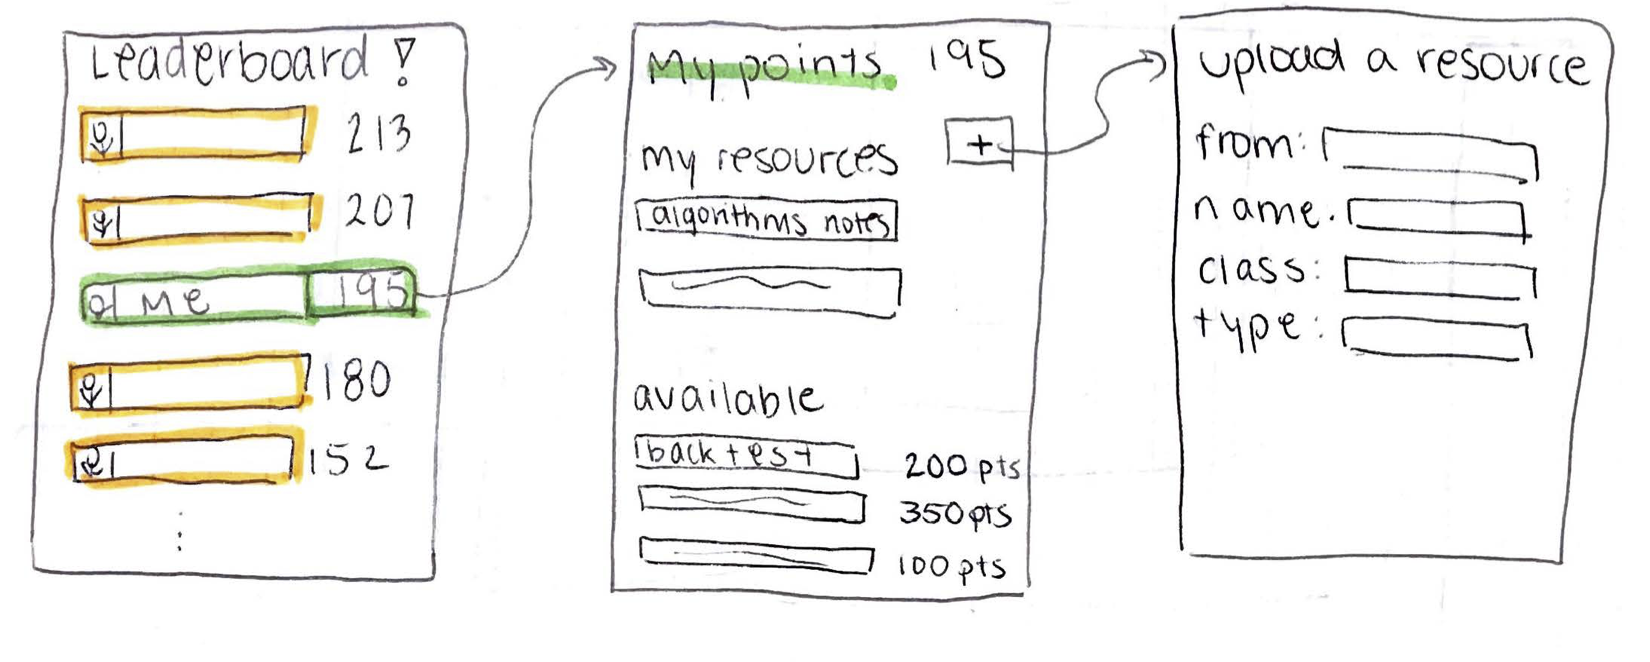 Leaderboard !
213
207
Me 195
180
152
My points 195
+
my resources
algorithms notes
available
backtest 200 pts
350 pts
100 pts
upload a resource
from:
name.
class:
type: